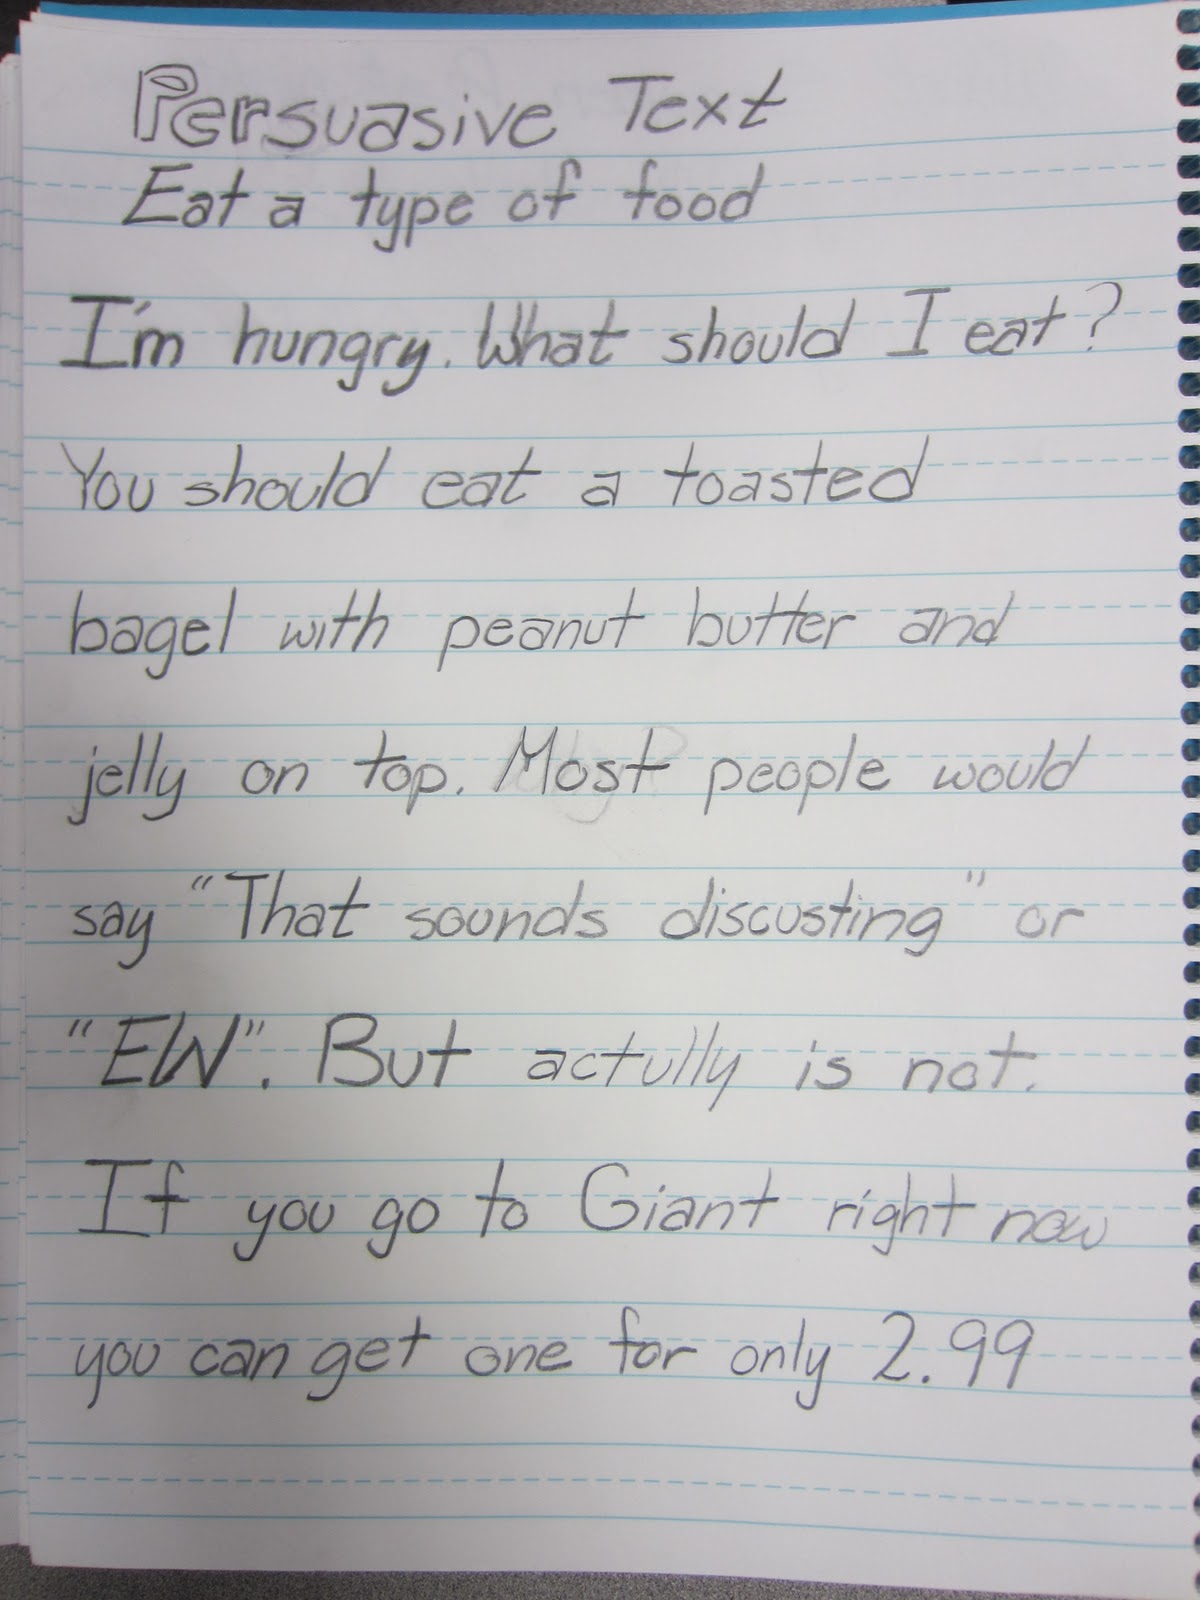 Persuasive Text
Eat a type of food
I'm hungry. What should I eat?
You should eat a toasted
bagel with peanut butter and
jelly on top. Most people would
say "That sounds discusting" or
"EW". But actully is not.
If you go to Giant right now
you can get one for only 2.99